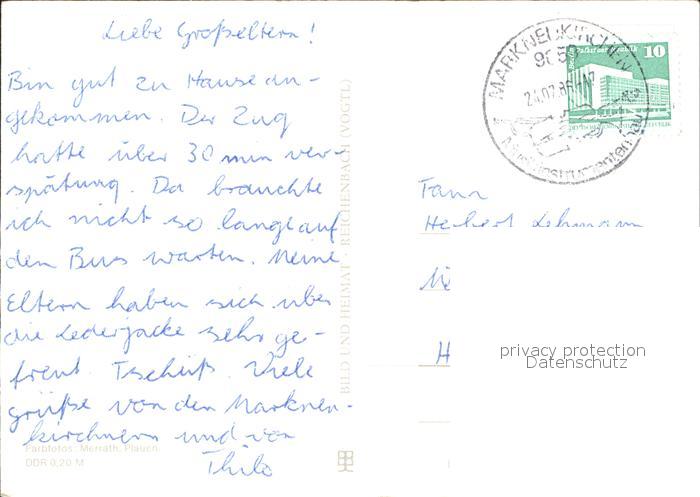 Liebe Großeltern!
Bin gut zu Hause an-
gekommen. Der Zug
hatte über 30 min ver-
spätung. Da brauchte
ich nicht so lange auf
den Bus warten. Meine
Eltern haben sich über
die Lederjacke sehr ge-
freut. Tschüß. Viele
grüße von den Markneu-
kirchnern und von
Thilo
Farbfotos: Merrath, Plauen
DDR 0,20 M
BILD UND HEIMAT · REICHENBACH (VOGTL)
MARKNEUKIRCHEN
9659
24.07.86-17
Musikinstrumentenmuseum
Berlin, Palast der Republik
10
Fam
Herbert Lehmann
H
privacy protection
Datenschutz